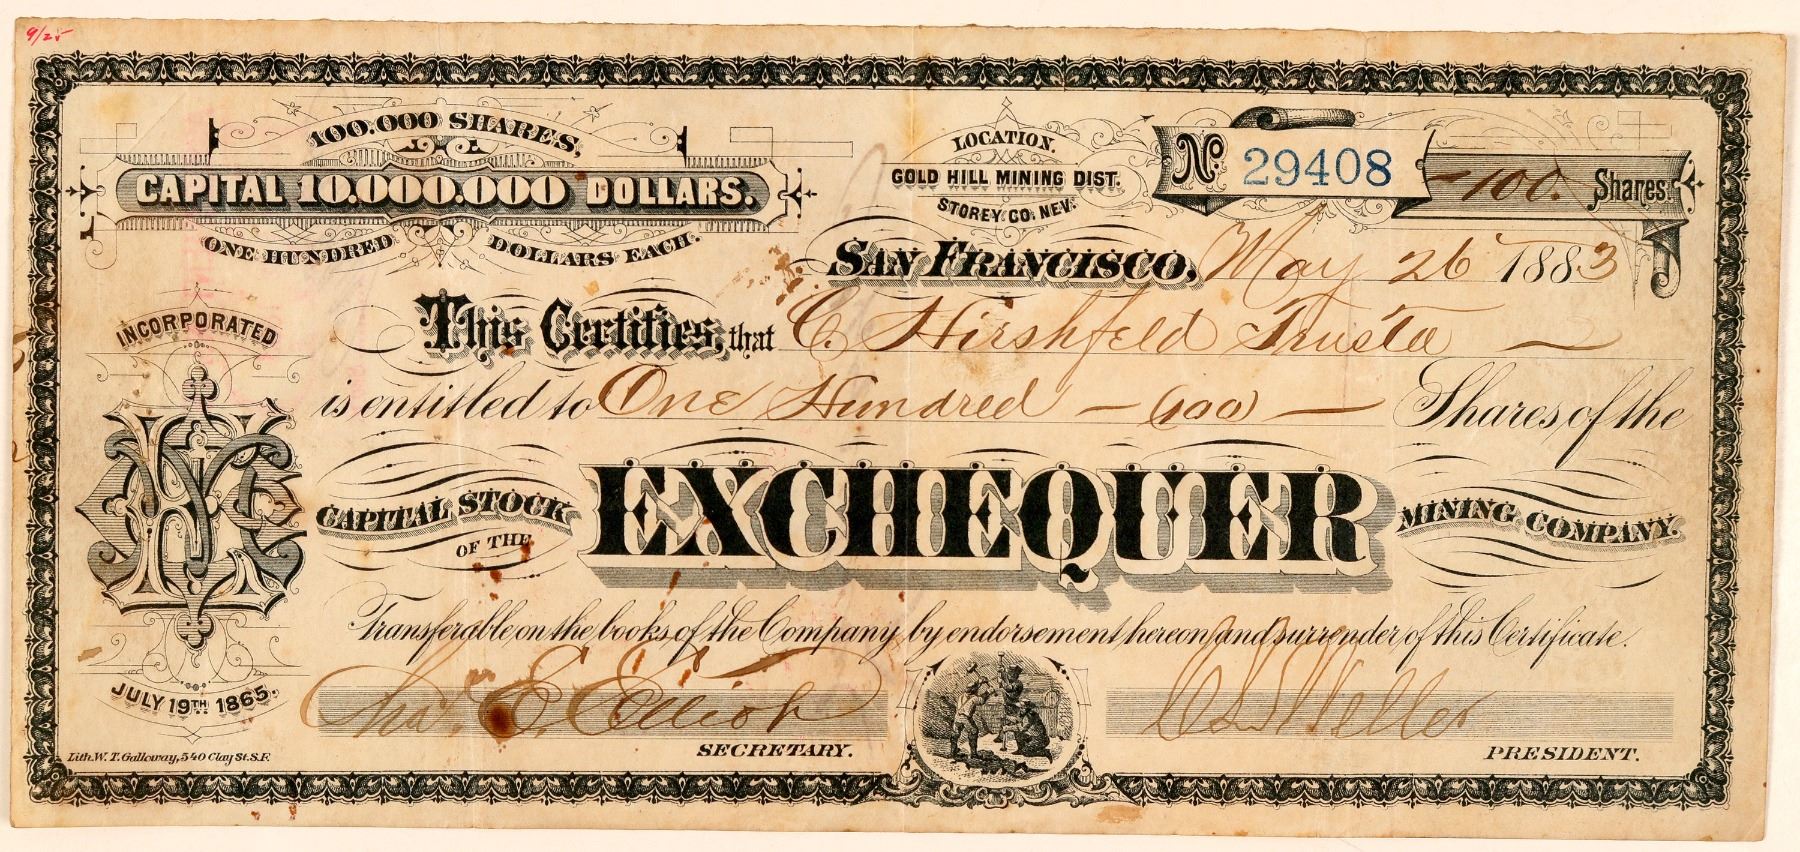 9/25
100.000 SHARES,
CAPITAL 10.000.000 DOLLARS.
ONE HUNDRED DOLLARS EACH.
LOCATION.
GOLD HILL MINING DIST.
STOREY. CO. NEV.
No. 29408 -100. Shares.
SAN FRANCISCO, May 26 1883
This Certifies, that C. Hirshfeld Trustee
is entitled to One Hundred — (100) — Shares of the
CAPITAL STOCK OF THE EXCHEQUER MINING COMPANY.
Transferable on the books of the Company, by endorsement hereon and surrender of this Certificate.
INCORPORATED
JULY 19TH 1865.
Chas. E. Elliott
SECRETARY.
Weller
PRESIDENT.
Lith. W. T. Galloway, 540 Clay St. S.F.